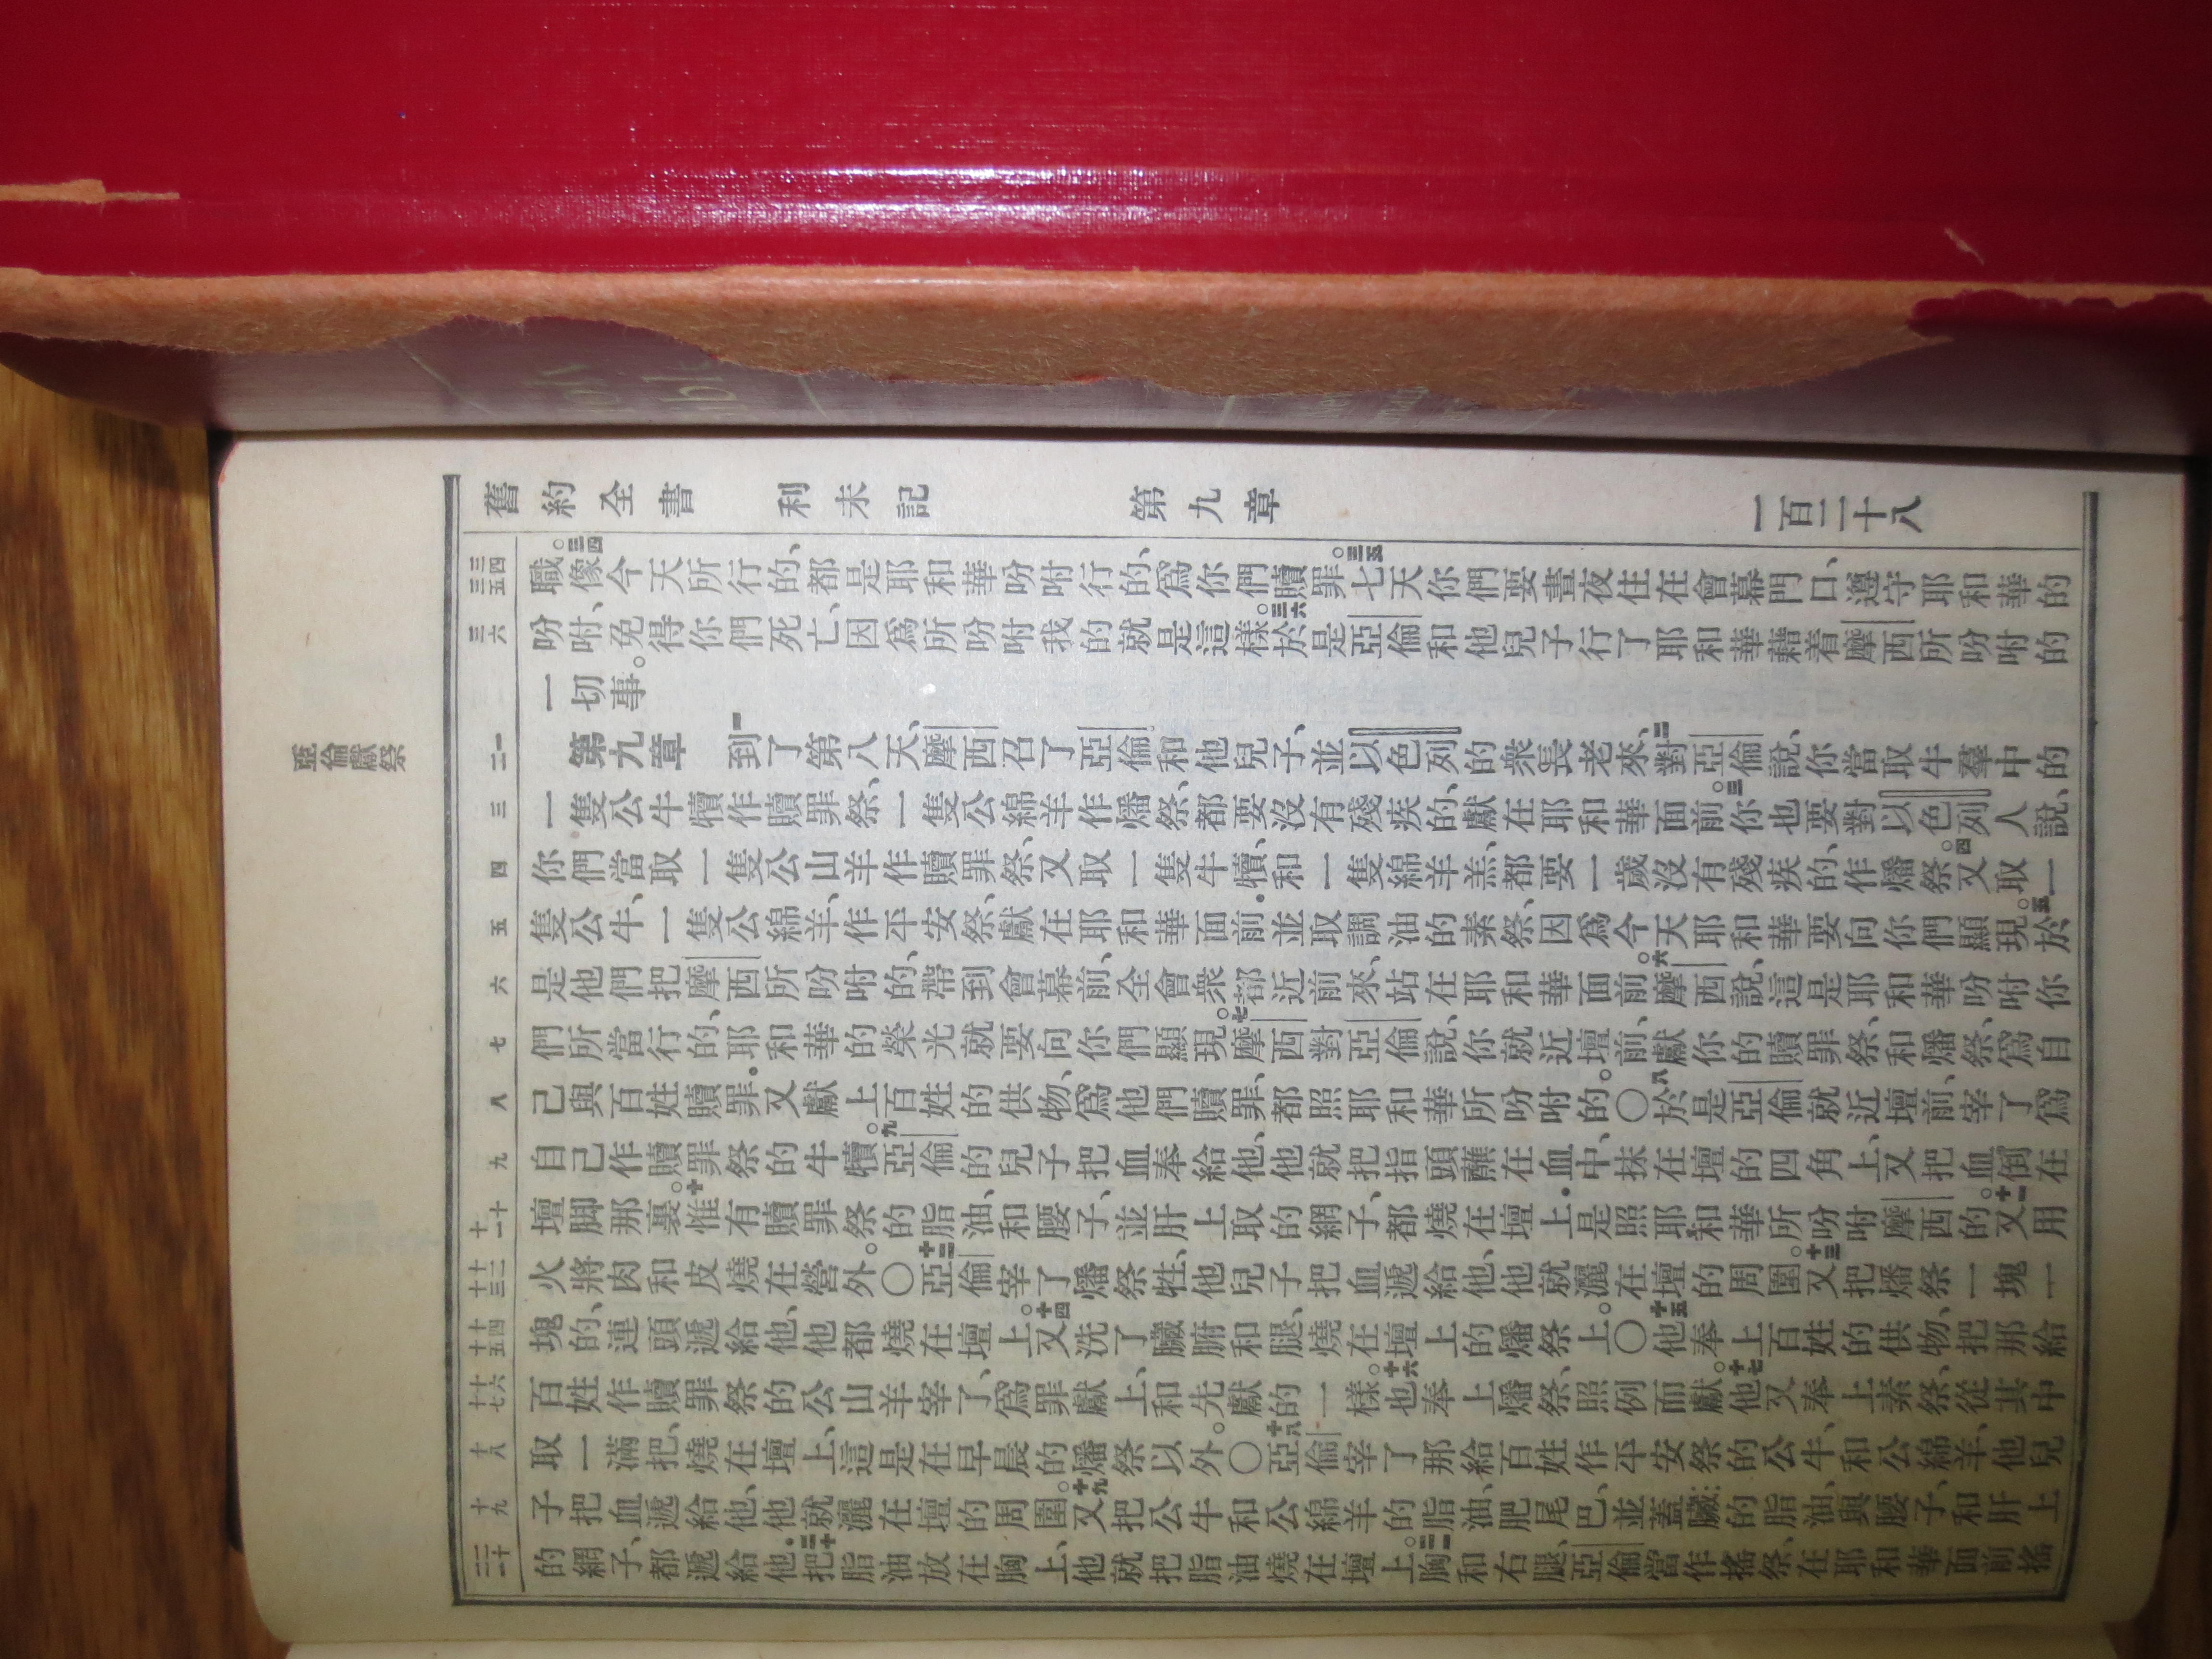 舊約全書 利未記 第九章 一百二十八
三四 三五
職。三四像今天所行的、都是耶和華吩咐行的、爲你們贖罪。三五七天你們要晝夜住在會幕門口、遵守耶和華的
三六
吩咐、免得你們死亡、因爲所吩咐我的就是這樣。三六於是亞倫和他兒子行了耶和華藉着摩西所吩咐的
一切事。
亞倫獻祭
一 二
第九章 一到了第八天、摩西召了亞倫和他兒子、並以色列的衆長老來、二對亞倫說、你當取牛羣中的
三
一隻公牛犢作贖罪祭、一隻公綿羊作燔祭、都要沒有殘疾的、獻在耶和華面前。三你也要對以色列人說、
四
你們當取一隻公山羊作贖罪祭、又取一隻牛犢、和一隻綿羊羔、都要一歲沒有殘疾的、作燔祭。四又取一
五
隻公牛、一隻公綿羊、作平安祭、獻在耶和華面前．並取調油的素祭、因爲今天耶和華要向你們顯現。五於
六
是他們把摩西所吩咐的、帶到會幕前、全會衆都近前來、站在耶和華面前。六摩西說、這是耶和華吩咐你
七
們所當行的、耶和華的榮光就要向你們顯現。七摩西對亞倫說、你就近壇前、獻你的贖罪祭、和燔祭、爲自
八
己與百姓贖罪．又獻上百姓的供物、爲他們贖罪、都照耶和華所吩咐的。○八於是亞倫就近壇前、宰了爲
九
自己作贖罪祭的牛犢。九亞倫的兒子把血奉給他、他就把指頭蘸在血中、抹在壇的四角上、又把血倒在
十 十一
壇脚那裏。十惟有贖罪祭的脂油、和腰子、並肝上取的網子、都燒在壇上．是照耶和華所吩咐摩西的。十一又用
十二 十三
火將肉和皮燒在營外。○十二亞倫宰了燔祭牲、他兒子把血遞給他、他就灑在壇的周圍。十三又把燔祭一塊一
十四 十五
塊的、連頭遞給他、他都燒在壇上。十四又洗了臟腑和腿、燒在壇上的燔祭上。○十五他奉上百姓的供物、把那給
十六 十七
百姓作贖罪祭的公山羊宰了、爲罪獻上、和先獻的一樣。十六也奉上燔祭、照例而獻。十七他又奉上素祭、從其中
十八
取一滿把、燒在壇上、這是在早晨的燔祭以外。○十八亞倫宰了那給百姓作平安祭的公牛、和公綿羊、他兒
十九
子把血遞給他、他就灑在壇的周圍。十九又把公牛和公綿羊的脂油、肥尾巴、並蓋臟的脂油、與腰子、和肝上
二十 二一
的網子、都遞給他．二十把脂油放在胸上、他就把脂油燒在壇上。二一胸和右腿、亞倫當作搖祭、在耶和華面前搖